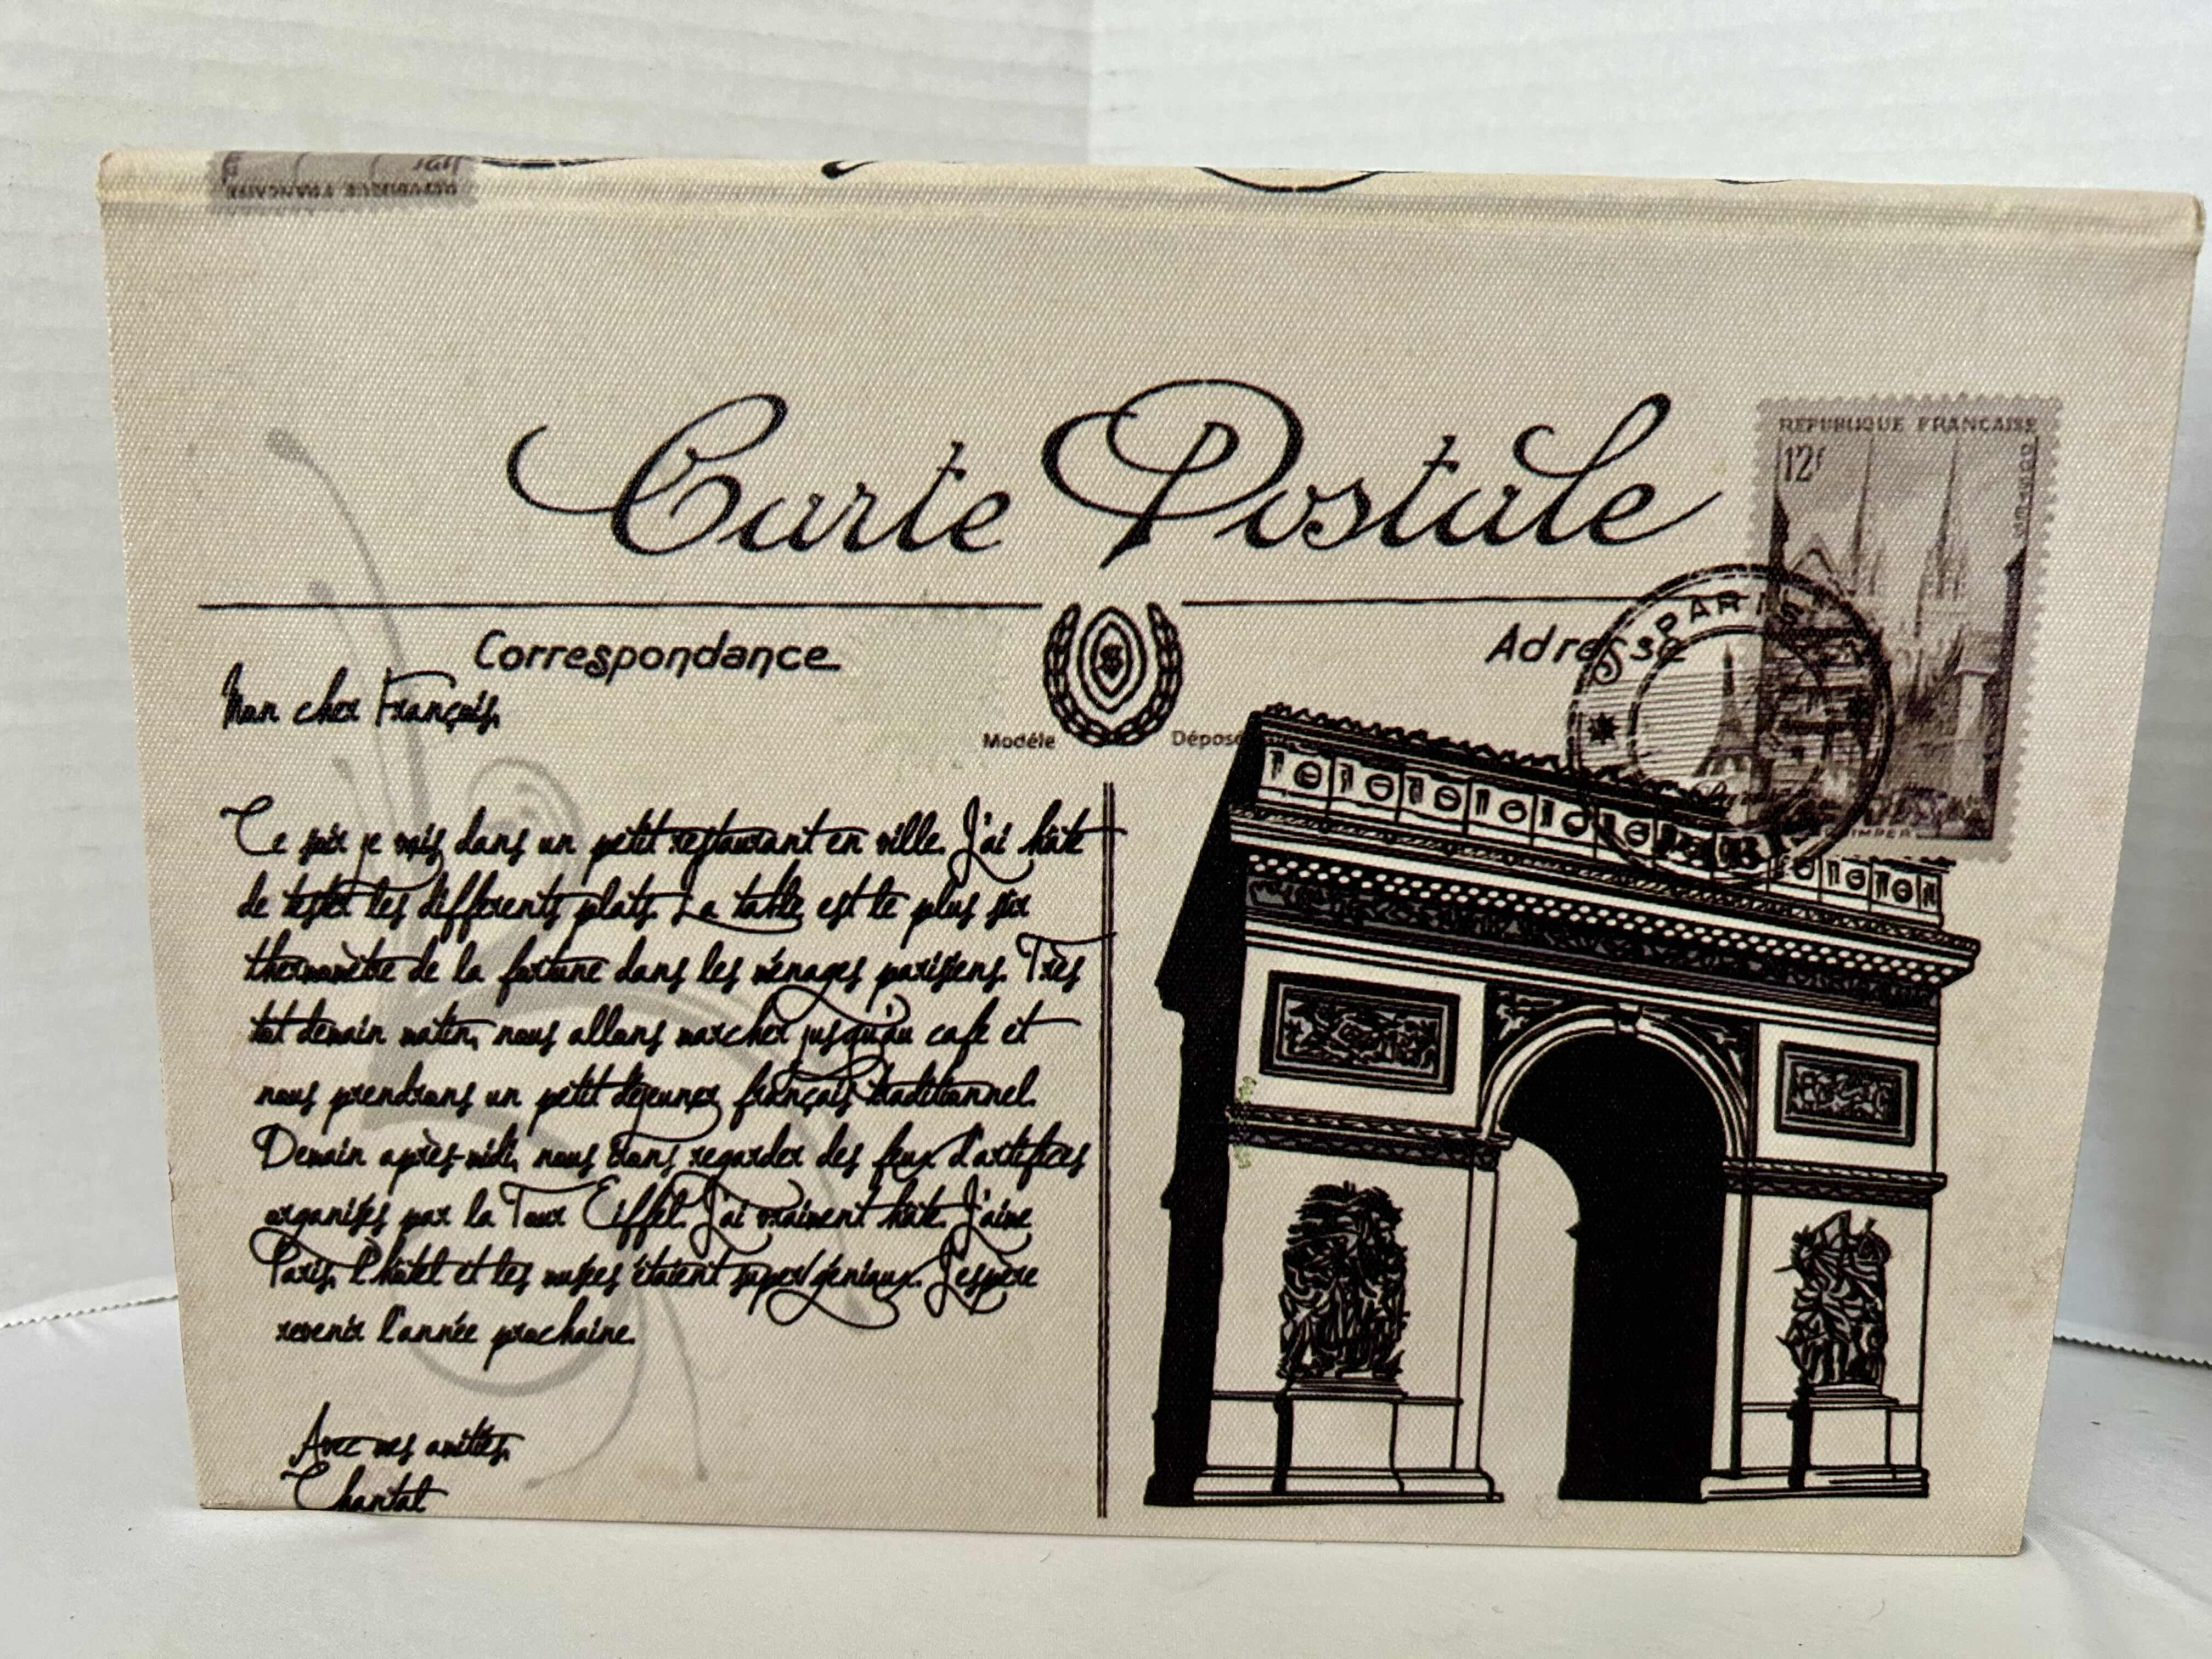 REPUBLIQUE FRANCAISE
Carte Postale
REPUBLIQUE FRANCAISE
12f
PARIS
Correspondance
Adresse
Modéle Déposé
Mon cher François,
Ce soir je vais dans un petit restaurant en ville. J'ai hâte
de tester les différents plats. La table est le plus sûr
thermomètre de la fortune dans les ménages parisiens. Très
tot demain matin, nous allons marcher jusqu'au cafe et
nous prendrons un petit déjeuner français traditionnel.
Demain après-midi, nous irons regarder des feux d'artifices
organisés par la Tour Eiffel. J'ai vraiment hâte. J'aime
Paris, l'hôtel et les musées étaient super géniaux. J'espère
revenir l'année prochaine.
Avec mes amitiés,
Chantal